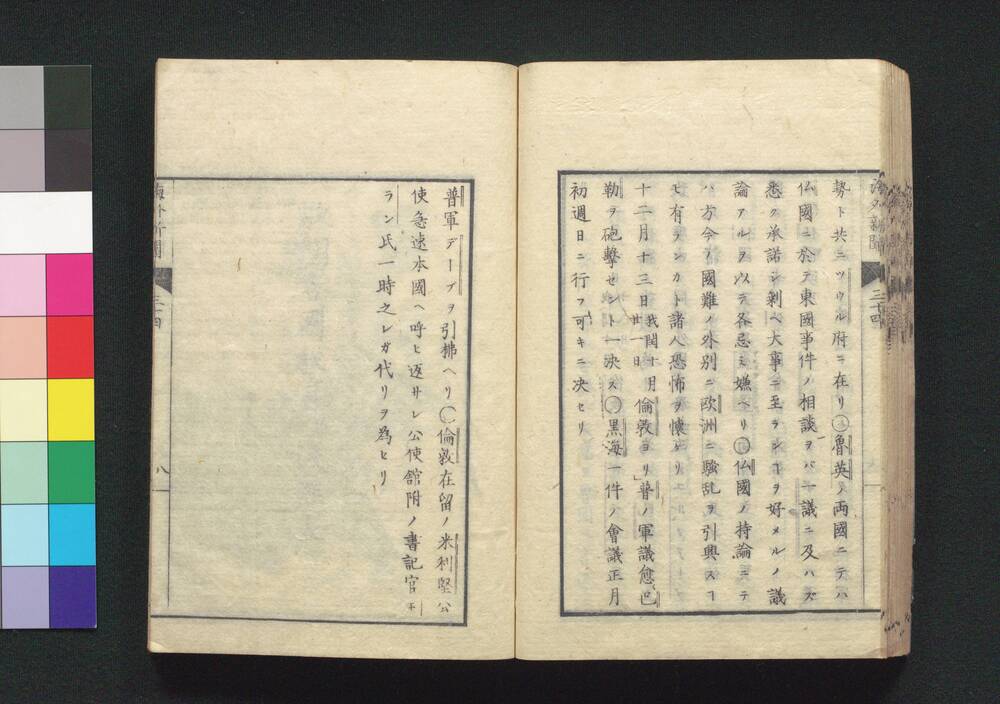 海外新聞
三十四
勢ト共ニツウル府ニ在リ〇魯英ノ両國ニテハ
仏國ニ於テ東國事件ノ相談ヲバ一議ニ及ハズ
悉ク承諾シ剰ヘ大事ニ至ラシヿヲ好メルノ議
論アルヲ以テ各忌ミ嫌ヘリ〇仏國ノ持論ニテ
ハ方今ノ國難ノ外別ニ欧洲ニ騒乱ヲ引興スヿ
モ有ランカト諸人恐怖ヲ懐ケリ
十二月十三日我閏十月廿一日倫敦ヨリ普ノ軍議愈巴
勒ヲ砲擊セント一決ス〇黒海一件ノ會議正月
初週日ニ行フ可キニ決セリ
普軍デーブヲ引拂ヘリ〇倫敦在留ノ米利堅公
使急速本國ヘ呼ヒ返サレ公使舘附ノ書記官モ
ラン氏一時之レガ代リヲ為セリ
海外新聞
三十四
八